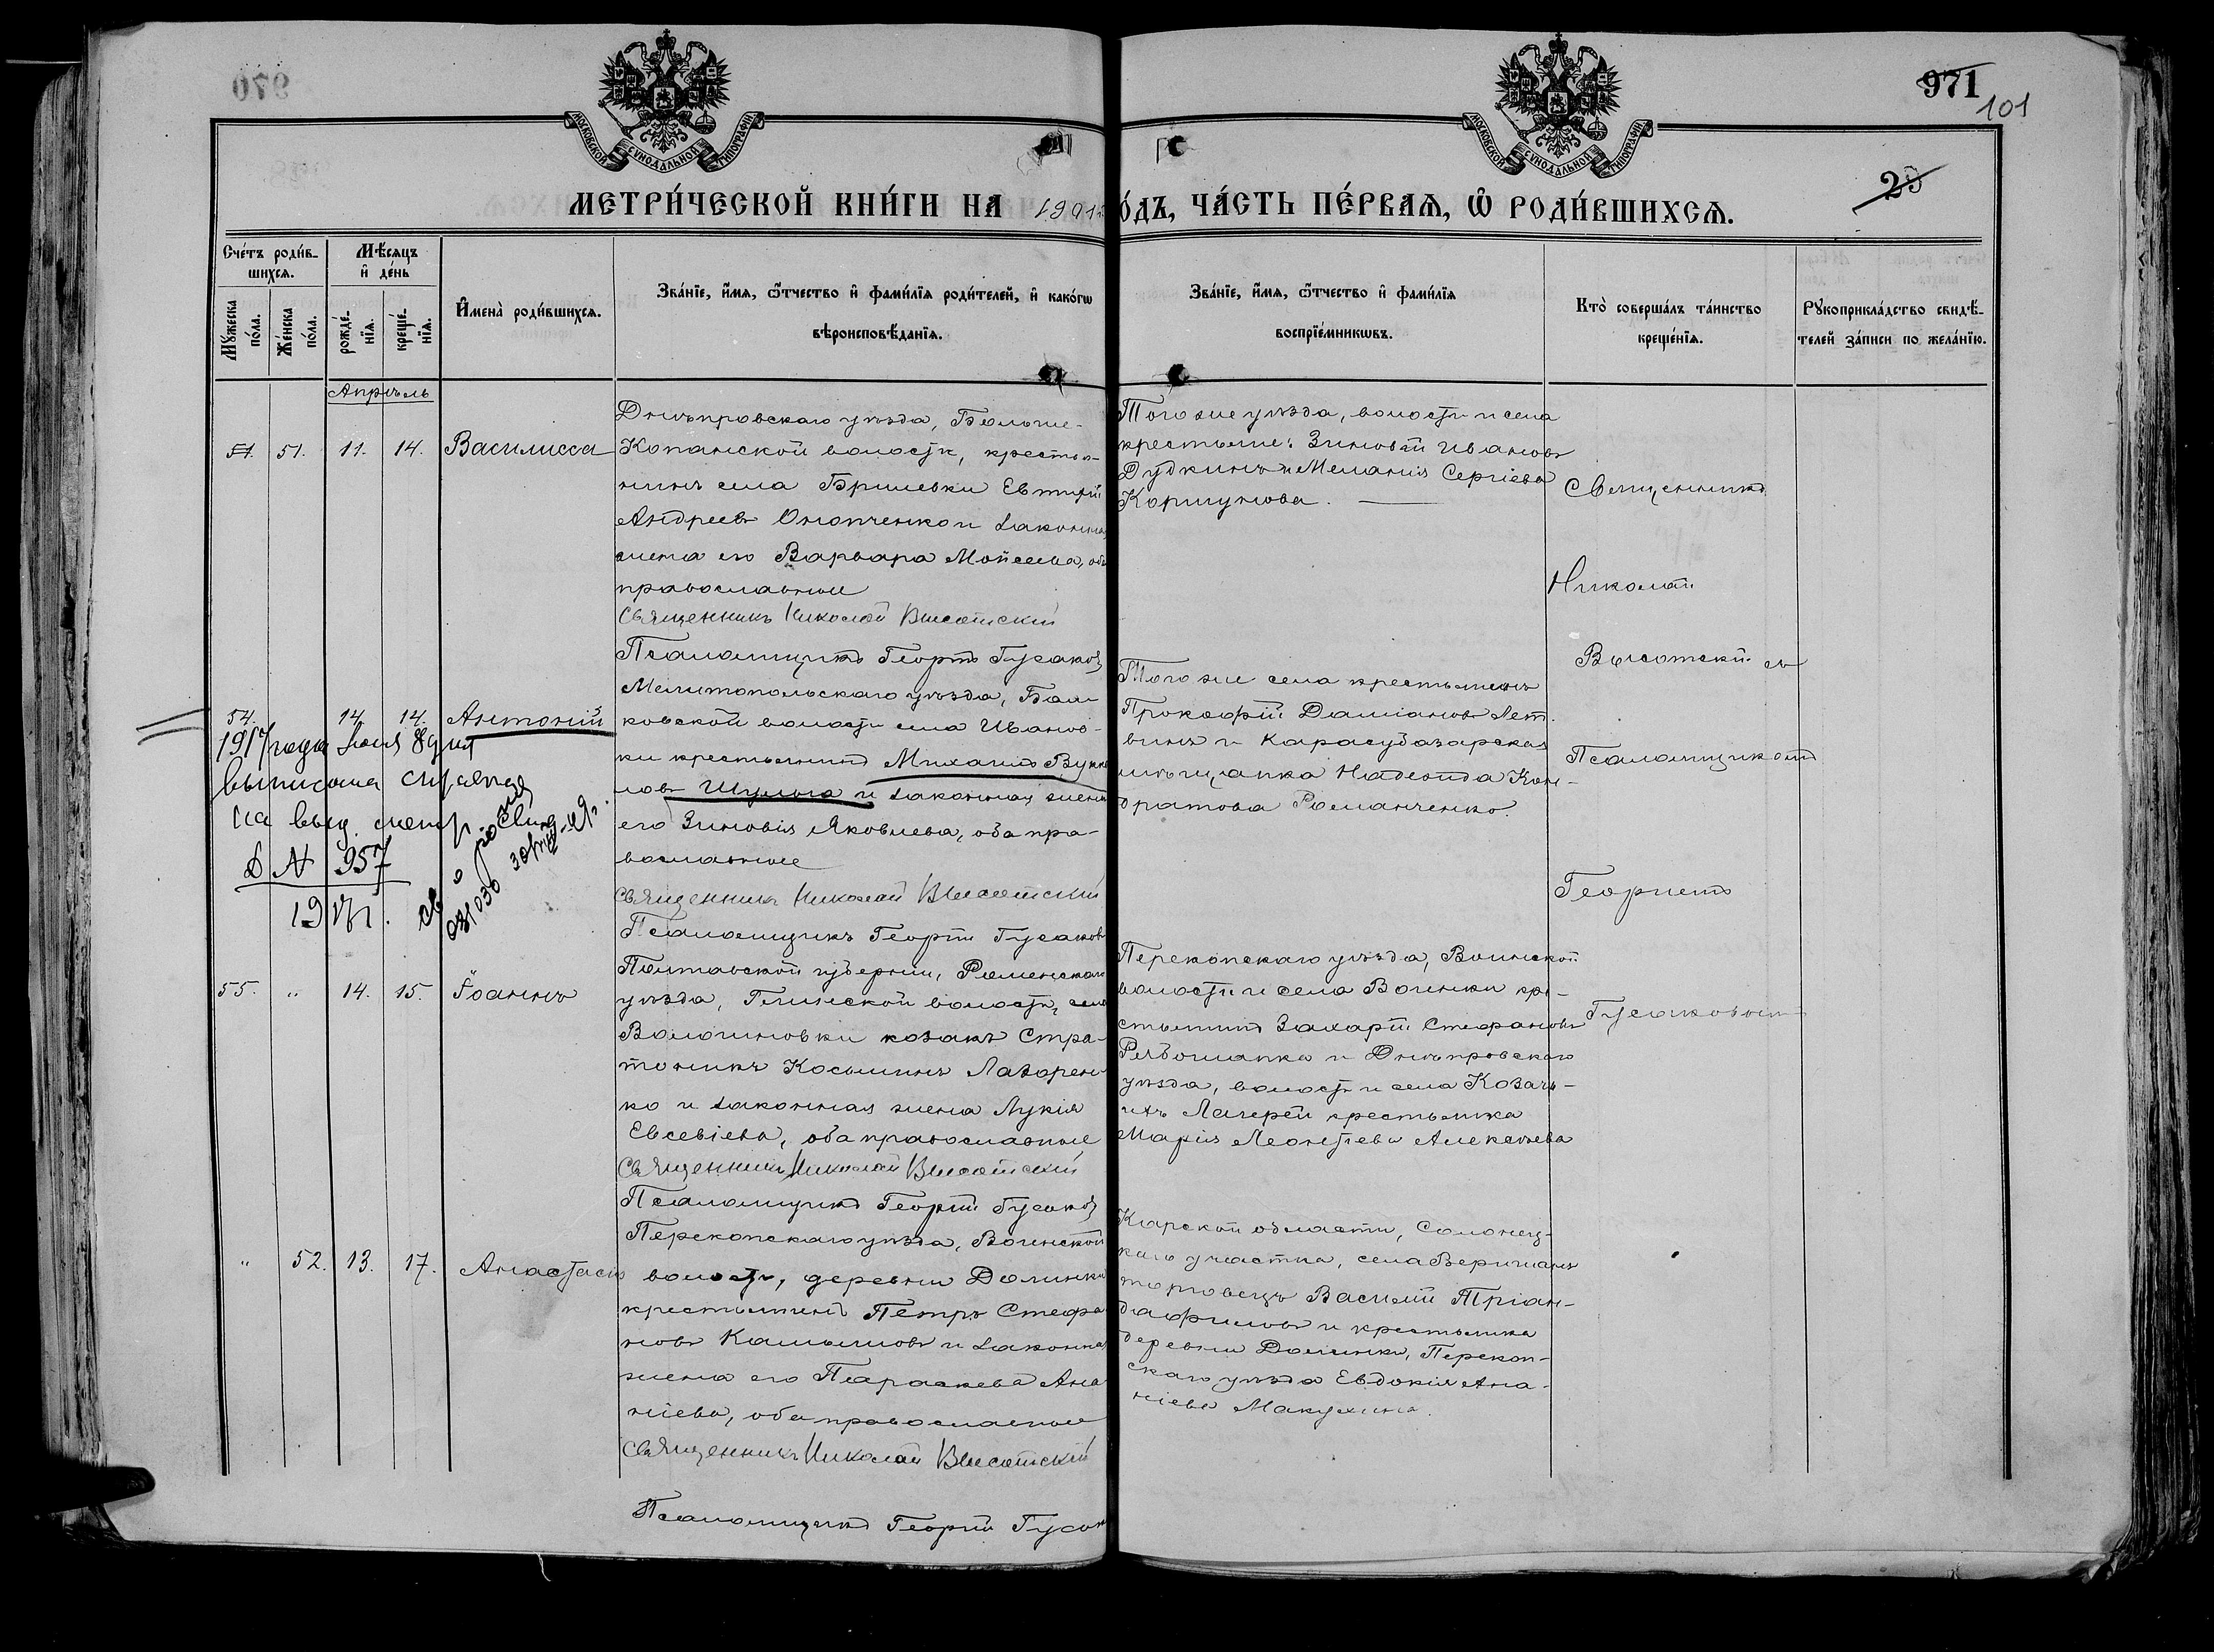 970
971
101
МОСКОВСКОЙ СѴНОДАЛЬНОЙ ТИПОГРАФІИ
МОСКОВСКОЙ СѴНОДАЛЬНОЙ ТИПОГРАФІИ
25
МЕТРИ́ЧЕСКОЙ КНИ́ГИ НА 1901 ГО́ДЪ, ЧА́СТЬ ПЕ́РВАѦ, Ѡ҆ РОДИ́ВШИХСѦ.
Сче́тъ роди́в-
шихсѧ.
Мꙋ́жеска
по́ла.
Же́нска
по́ла.
Мѣ́сѧцъ
и҆ де́нь
рожде́-
нїѧ.
креще́-
нїѧ.
И҆мена̀ роди́вшихсѧ.
Зва́нїе, и҆́мѧ, ѻ҆́тчество и҆ фами́лїѧ роди́телей, и҆ како́гѡ
вѣроисповѣ́данїѧ.
Зва́нїе, и҆́мѧ, ѻ҆́тчество и҆ фами́лїѧ
воспрїе́мникѡвъ.
Кто̀ соверша́лъ та́инство
креще́нїѧ.
Рꙋкоприкла́дство свидѣ́-
телей за́писи по жела́нїю.
Апрѣль
51. 51. 11. 14. Василисса
Днѣпровскаго уѣзда, Больше-
Копанской волости, крестья-
нинъ села Брилевки Евтихій
Андреевъ Онопченко и законная
жена его Варвара Моисеева, оба
православные
Священникъ Николай Высотскій
Псаломщикъ Георгій Гусаковъ
Того же уѣзда, волости и села
крестьяне: Зиновій Ивановъ
Дудкинъ и Меланія Сергіева
Коршунова.
Священникъ
Николай
Высотскій съ
Псаломщикомъ
Георгіемъ
Гусаковымъ
54. 14. 14. Антоній
1917 года Іюня 8 дня
выписана справка
на выд. метр.
Д N 957
1917 г.
Мелитопольскаго уѣзда, Бал-
ковской волости села Иванов-
ки крестьянинъ Михаилъ Вуко-
ловъ Шулога и законная жена
его Зиновія Яковлева, оба пра-
вославные
Священникъ Николай Высотскій
Псаломщикъ Георгій Гусаковъ
Того же села крестьянинъ
Прокофій Даміановъ Лет-
винъ и Карасубазарская
мѣщанка Надежда Кон-
дратова Романченко.
55. " 14. 15. Іоаннъ
Полтавской губерніи, Роменскаго
уѣзда, Глинской волости, села
Волошиновки козакъ Стра-
тоникъ Косьминъ Лазорен-
ко и законная жена Лукія
Евсевіева, оба православные
Священникъ Николай Высотскій
Псаломщикъ Георгій Гусаковъ
Перекопскаго уѣзда, Воинской
волости и села Воинки кре-
стьянинъ Захарій Стефановъ
Рябошапка и Днѣпровскаго
уѣзда, волости и села Козачь-
ихъ Лагерей крестьянка
Марія Леонтіева Алексѣева
" 52. 13. 17. Анастасія
Перекопскаго уѣзда, Воинской
волости, деревни Долинки
крестьянинъ Петръ Стефа-
новъ Калымовъ и законная
жена его Параскева Ана-
ніева, оба православные
Священникъ Николай Высотскій
Псаломщикъ Георгій Гусак
Карской области, Солонец-
каго участка, села
торговецъ Василій Тріан-
дафиловъ и крестьянка
деревни Долинки, Перекоп-
скаго уѣзда Евдокія Ана-
ніева Макухина.